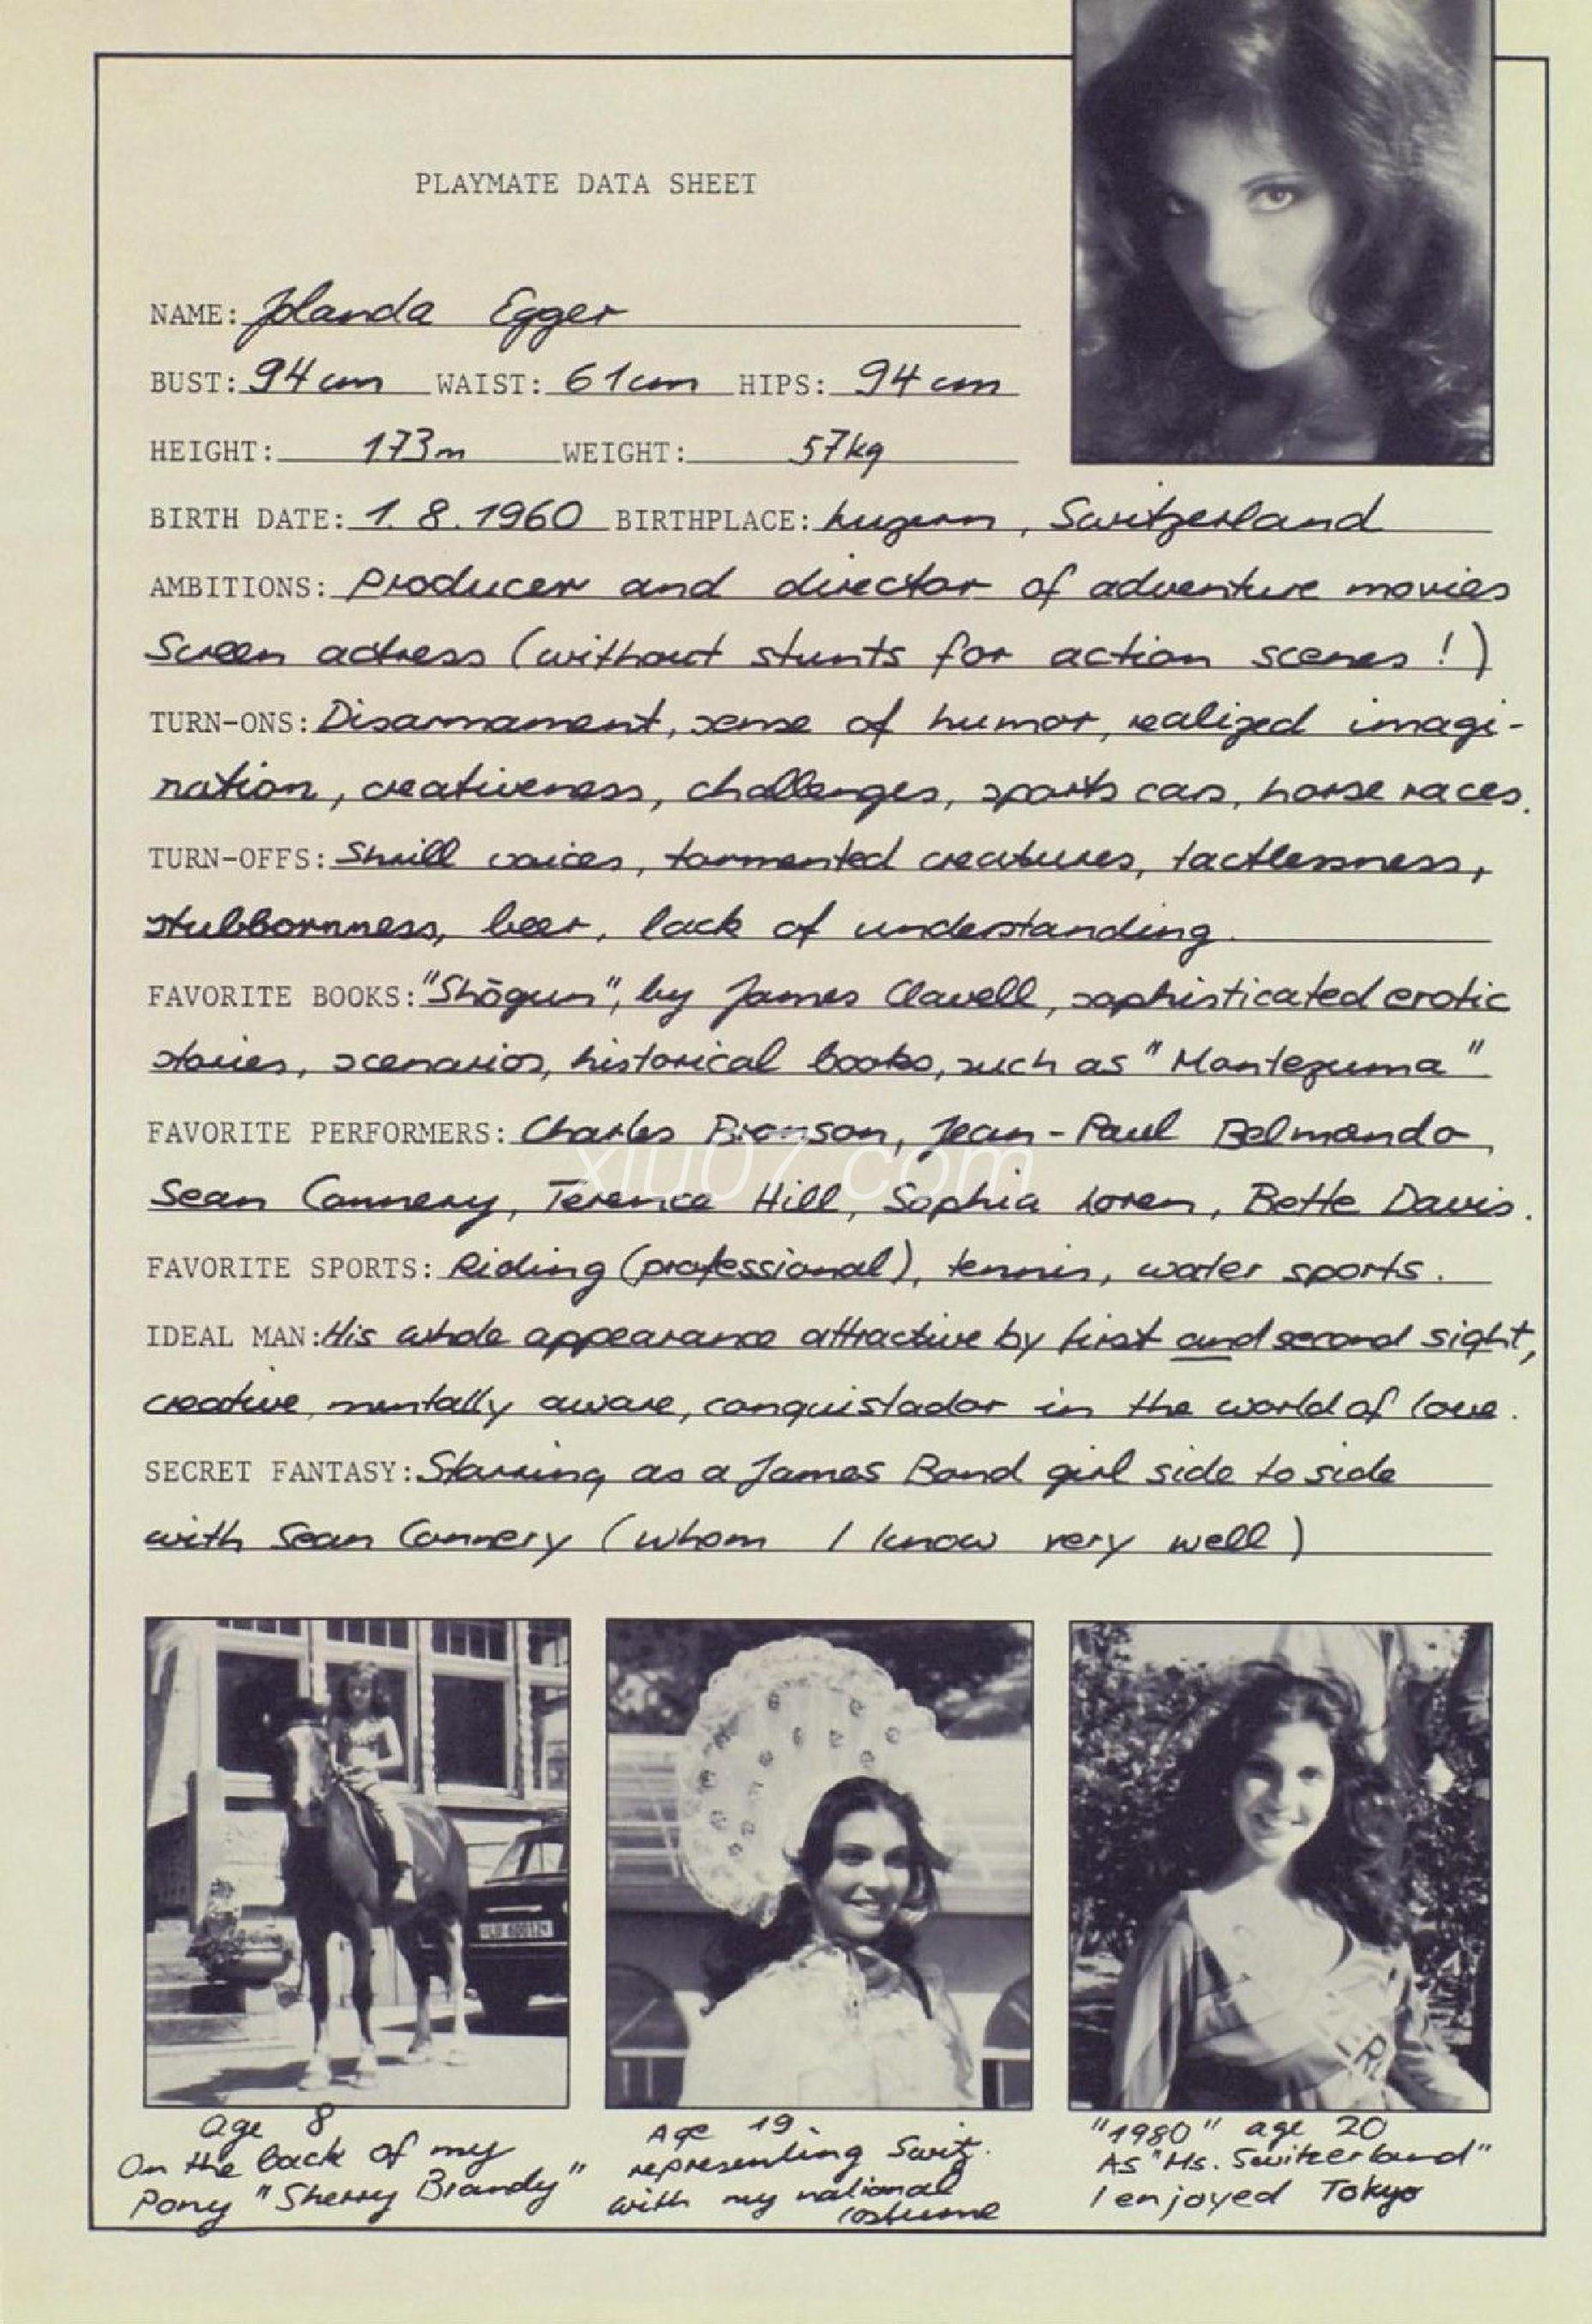 PLAYMATE DATA SHEET
NAME: Jolanda Egger
BUST: 94 cm WAIST: 61cm HIPS: 94 cm
HEIGHT: 1.73m WEIGHT: 57kg
BIRTH DATE: 1. 8. 1960 BIRTHPLACE: Luzern, Switzerland
AMBITIONS: Producer and director of adventure movies
Screen actress (without stunts for action scenes!)
TURN-ONS: Disarmament, sense of humor, realized imagi-
nation, creativeness, challenges, sports cars, horse races.
TURN-OFFS: Shrill voices, tormented creatures, tactlessness,
stubbornness, beer, lack of understanding.
FAVORITE BOOKS: "Shōgun", by James Clavell, sophisticated erotic
stories, scenarios, historical books, such as "Montezuma"
FAVORITE PERFORMERS: Charles Bronson, Jean-Paul Belmondo,
xiu07.com
Sean Connery, Terence Hill, Sophia Loren, Bette Davis.
FAVORITE SPORTS: Riding (professional), tennis, water sports.
IDEAL MAN: His whole appearance attractive by first and second sight,
creative, mentally aware, conquistador in the world of love.
SECRET FANTASY: Starring as a James Bond girl side to side
with Sean Connery (whom I know very well)
ER
Age 8
On the back of my
Pony "Sherry Brandy"
Age 19.
representing Switz.
with my national
costume
"1980" age 20
As "Ms. Switzerland"
I enjoyed Tokyo